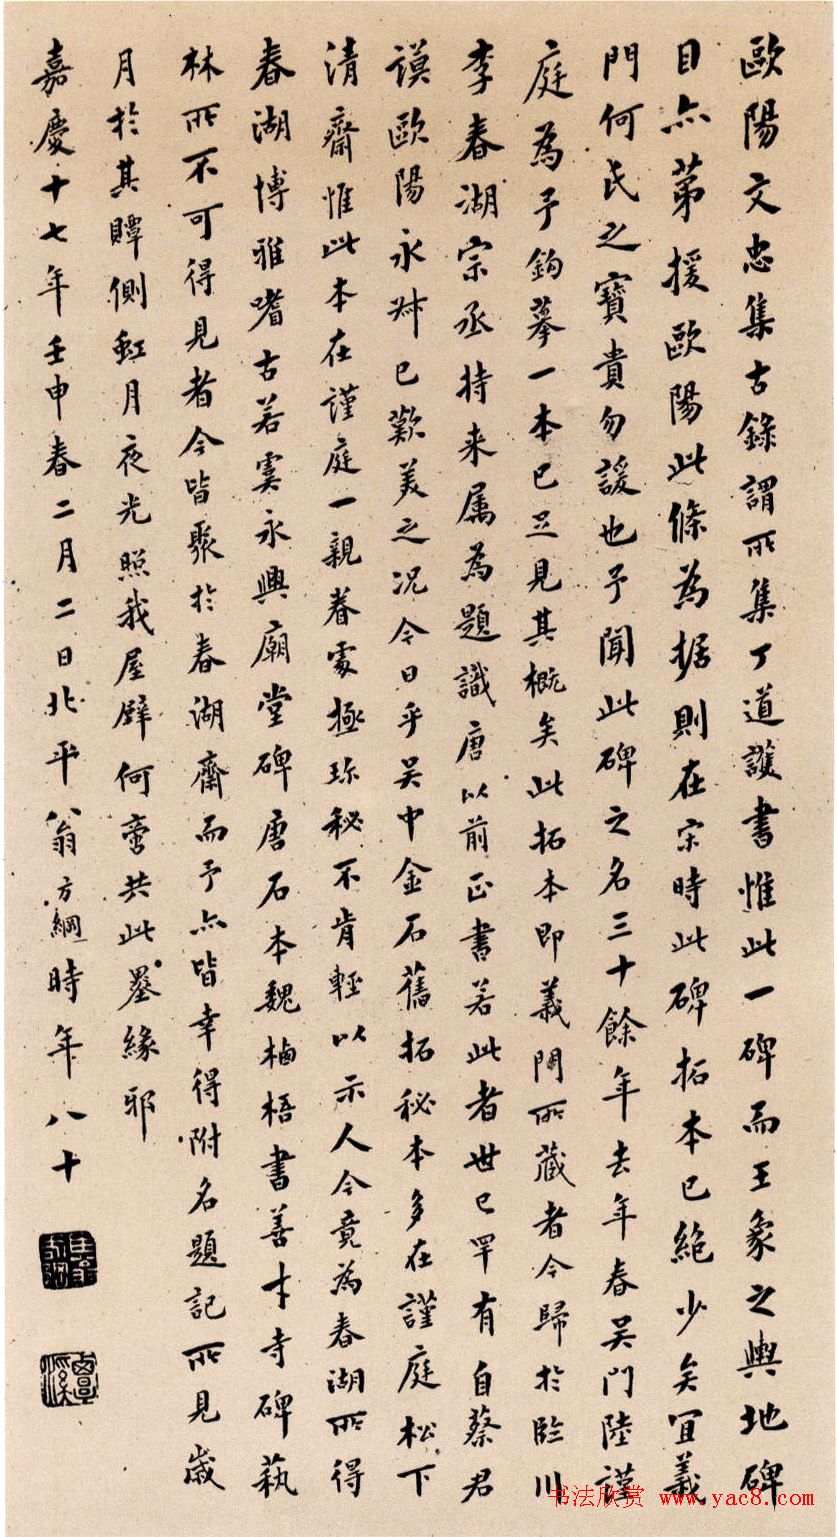 歐陽文忠集古錄謂所集丁道護書惟此一碑而王象之輿地碑
目亦第援歐陽此條為据則在宋時此碑拓本已絶少矣宜義
門何氏之寶貴勿諼也予聞此碑之名三十餘年去年春吴門陸謹
庭為予鈎摹一本已足見其概矣此拓本即義門所藏者今歸於臨川
李春湖宗丞持来属為題識唐以前正書若此者世已罕有自蔡君
謨歐陽永叔已歎美之况今日乎吴中金石舊拓秘本多在謹庭松下
清齋惟此本在謹庭一親眷處極珎秘不肯輕以示人今竟為春湖所得
春湖博雅嗜古若虞永興廟堂碑唐石本魏栖梧書善才寺碑藝
林所不可得見者今皆聚於春湖齋而予亦皆幸得附名題記所見歲
月於其贉側虹月夜光照我屋壁何啻共此墨緣邪
嘉慶十七年壬申春二月二日北平翁方綱時年八十
覃溪
书法欣赏 www.yac8.com